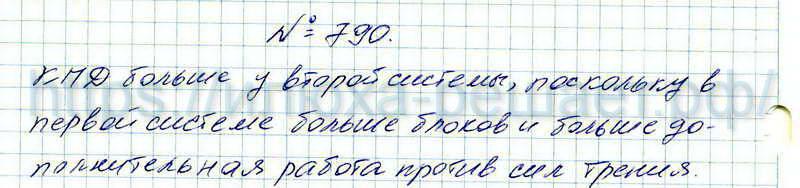 № 790.
КПД больше у второй системы, поскольку в
первой системе больше блоков и больше до-
полнительная работа против сил трения.